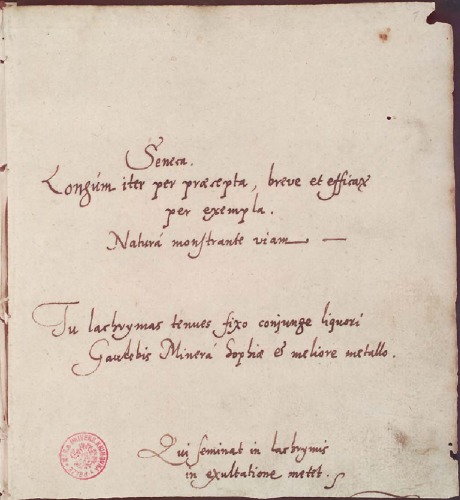 Seneca.
Longúm iter per præcepta, breve et efficax
per exempla.
Naturá monstrante viam —
Tu lachrymas tenues fixo conjunge liquori
Gaudebis Minerá Sophiæ & meliore metallo.
Qui seminat in lachrymis
in exultatione metet.